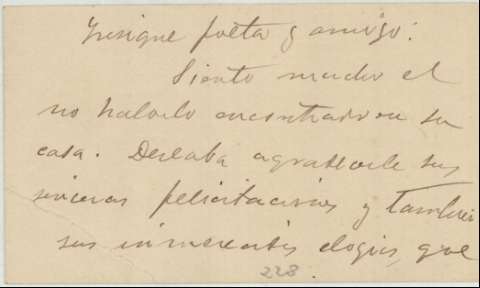 Insigne poeta y amigo:
Siento mucho el
no haberlo encontrado en su
casa. Deseaba agradecerle sus
sinceras felicitaciones y tambien
sus inmerecidos elogios, que
228.